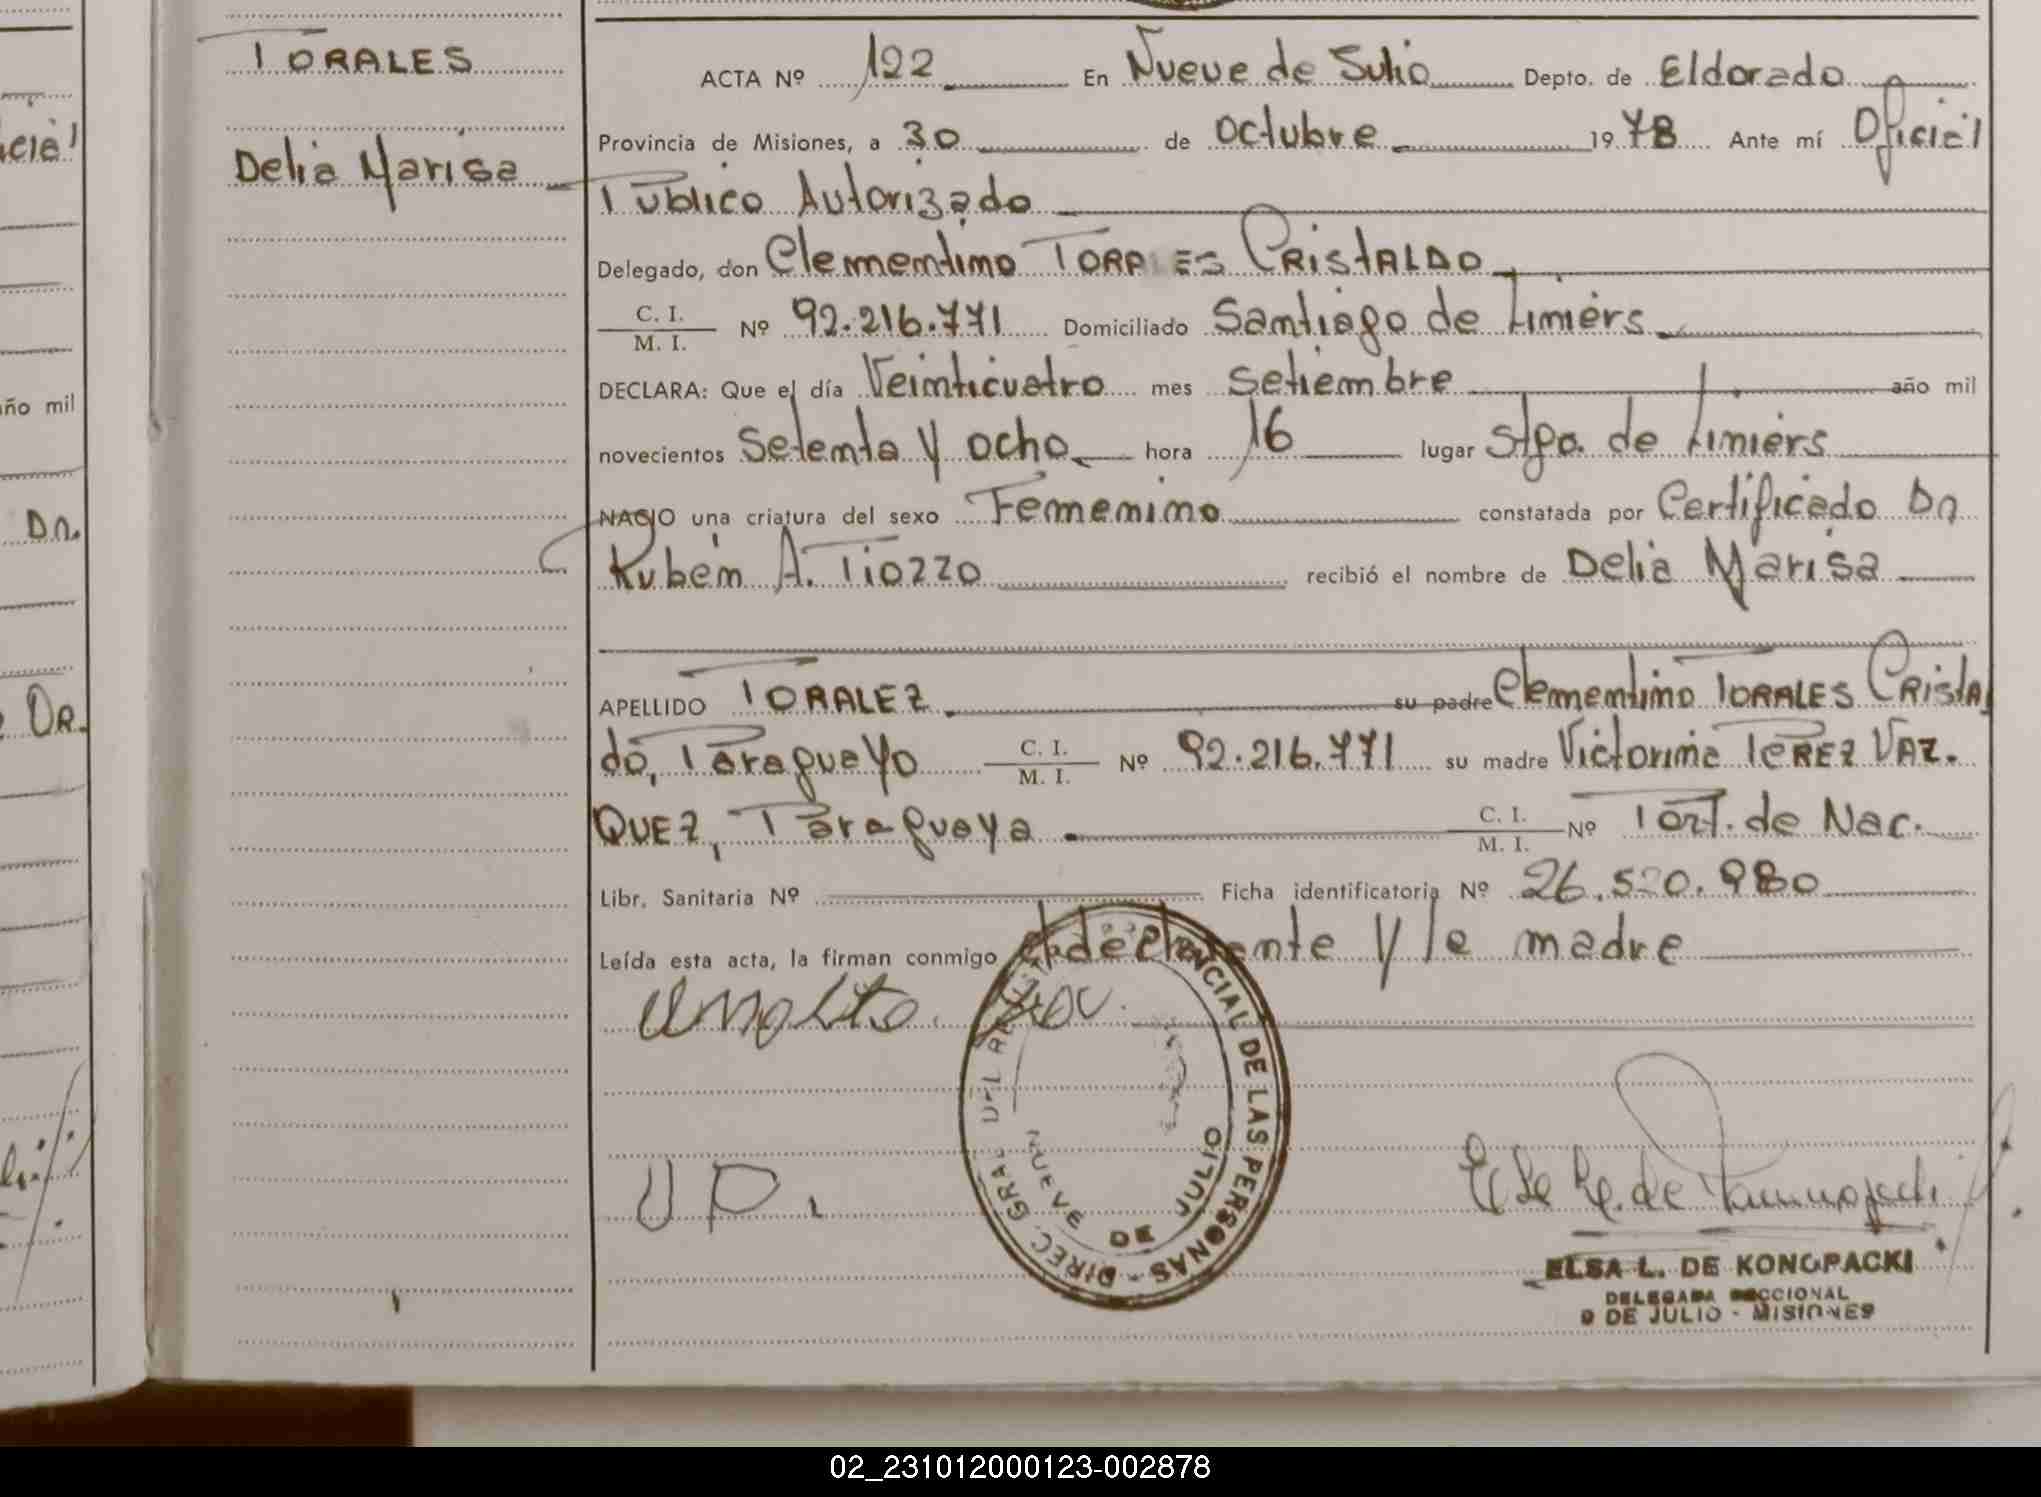 TORALES
Delia Marisa
ACTA Nº 122 En Nueve de Julio Depto. de Eldorado
Provincia de Misiones, a 30 de Octubre 1978 Ante mí Oficial
Público Autorizado
Delegado, don Clementino TORALES CRISTALDO
C. I.
M. I. Nº 92.216.771 Domiciliado Santiago de Liniers
DECLARA: Que el día Veinticuatro mes Setiembre año mil
novecientos Setenta y ocho hora 16 lugar Stgo. de Liniers
NACIO una criatura del sexo Femenino constatada por Certificado Dn
Rubén A. Tiozzo recibió el nombre de Delia Marisa
APELLIDO TORALEZ su padre Clementino TORALES CRISTAL
do, Paraguayo C. I.
M. I. Nº 92.216.771 su madre Victorina PEREZ VAZ.
QUEZ, Paraguaya C. I.
M. I. Nº Part. de Nac.
Libr. Sanitaria Nº Ficha identificatoria Nº 26.520.980
Leída esta acta, la firman conmigo el declarante y la madre
V P.
DIREC. GRAL DEL REGISTRO PROVINCIAL DE LAS PERSONAS
NUEVE DE JULIO
ELSA L. DE KONOPACKI
DELEGADA SECCIONAL
9 DE JULIO - MISIONES
año mil
Dn.
DR.
02_231012000123-002878